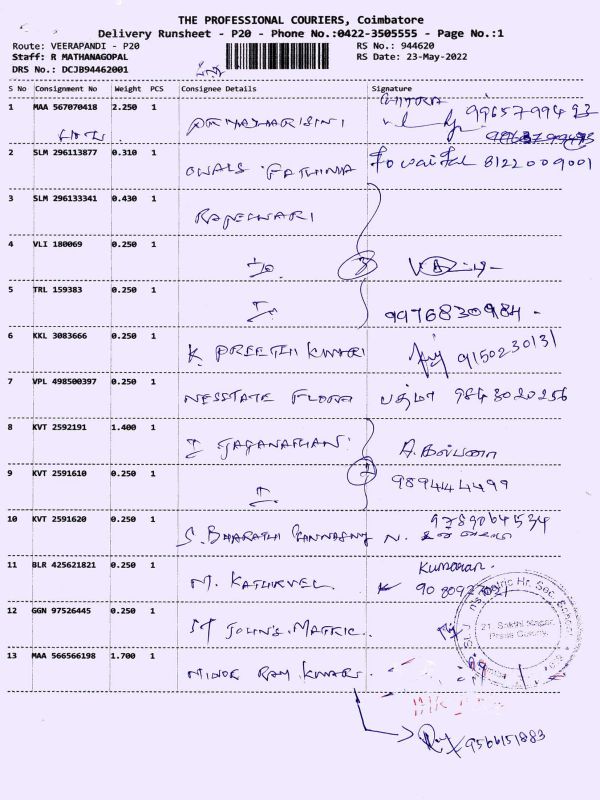 THE PROFESSIONAL COURIERS, Coimbatore
Delivery Runsheet - P20 - Phone No.:0422-3505555 - Page No.:1
Route: VEERAPANDI - P20 RS No.: 944620
Staff: R MATHANAGOPAL RS Date: 23-May-2022
DRS No.: DCJB94462001
S No Consignment No Weight PCS Consignee Details Signature
1 MAA 567070418 2.250 1 99657 994 93
2 SLM 296113877 0.310 1 OWALS FATHIMA 8122009001
3 SLM 296133341 0.430 1 RAJESWARI
4 VLI 180069 0.250 1 3
5 TRL 159383 0.250 1 9976830984 -
6 KKL 3083666 0.250 1 K PREETHI KUMARI 9150230131
7 VPL 498500397 0.250 1 NESSTATE FLORA பத்மா 984 3020256
8 KVT 2592191 1.400 1 I JAGANATHAN A. கல்பனா
9 KVT 2591610 0.250 1 2 9894444499
10 KVT 2591620 0.250 1 S. BHARATHI N. 9789064534
11 BLR 425621821 0.250 1 M. KATHIRVEL Kumaran.
12 GGN 97526445 0.250 1 ST JOHN'S MATRIC.
Matric Hr. Sec. School
21, Sakthi Nagar,
13 MAA 566566198 1.700 1 MINOR RAJ KUMAR
9566151883